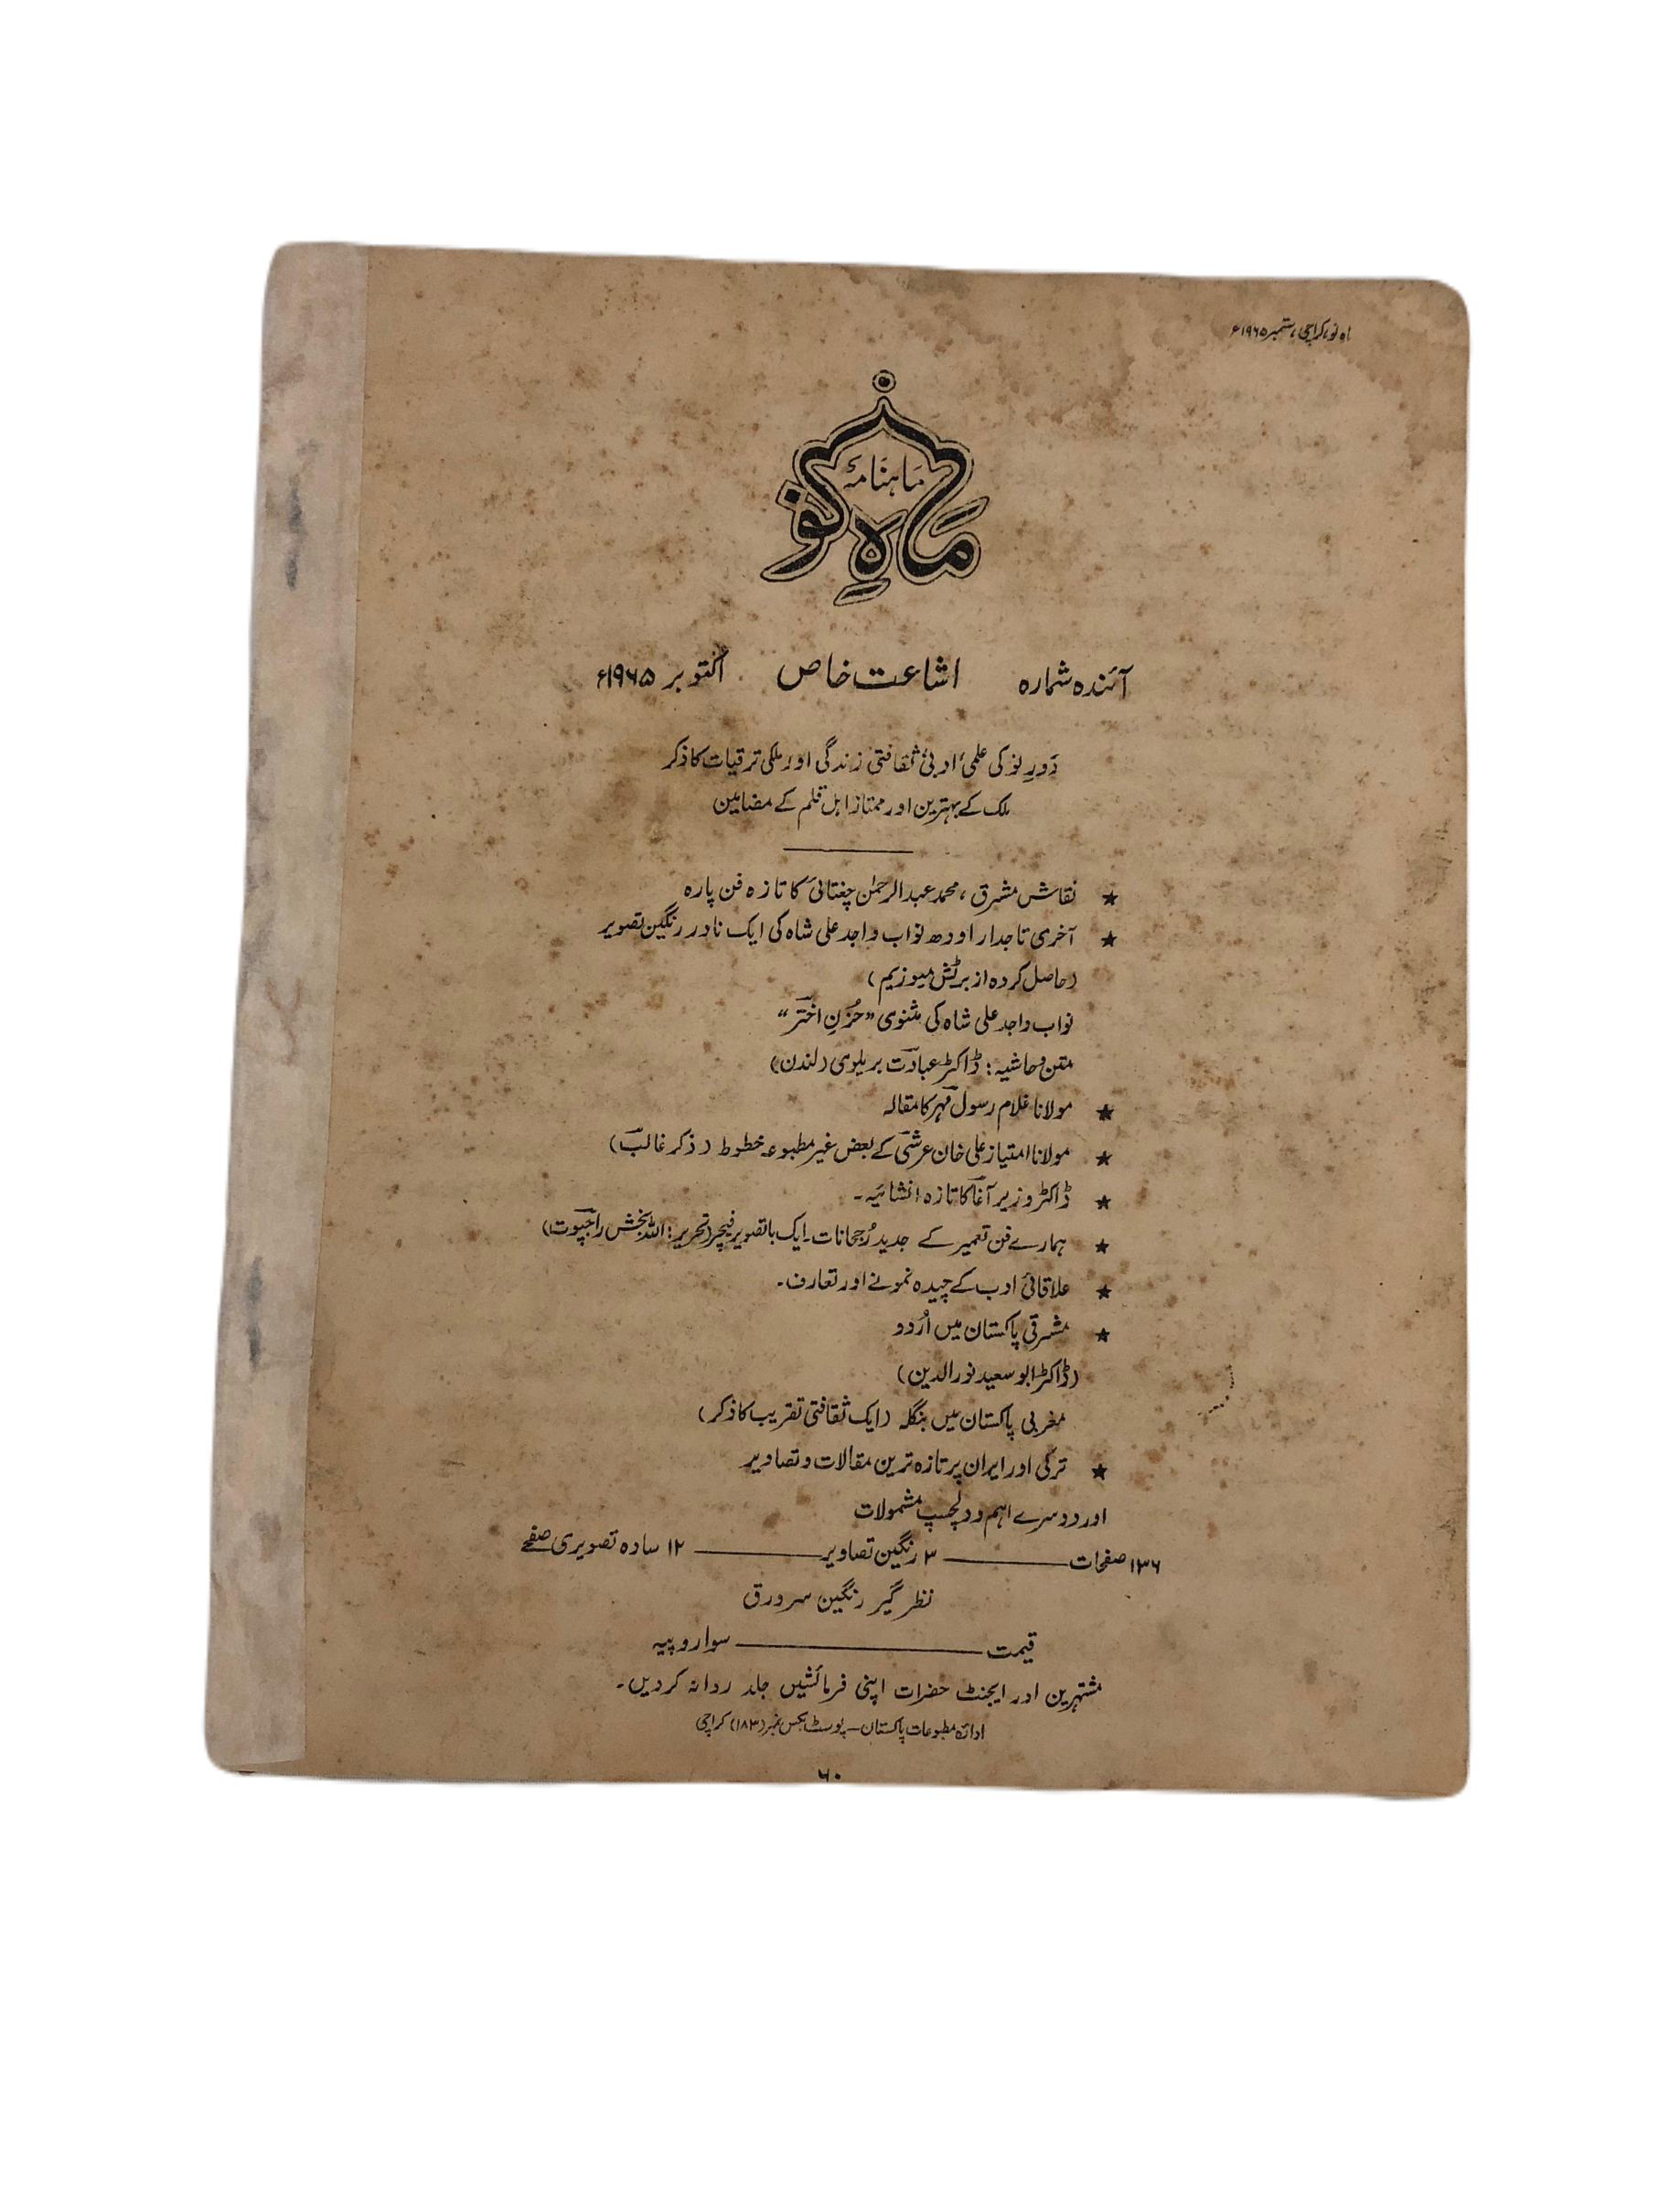 ماہ نو، کراچی، ستمبر ۱۹۶۵ء
ماہنامہ
ماہِ نو
آئندہ شمارہ اشاعت خاص اکتوبر ۱۹۶۵ء
دَورِ نو کی علمی، ادبی، ثقافتی زندگی اور ملکی ترقیات کا ذکر
ملک کے بہترین اور ممتاز اہل قلم کے مضامین
★ نقاش مشرق، محمد عبدالرحمٰن چغتائی کا تازہ فن پارہ
★ آخری تاجدار اودھ نواب واجد علی شاہ کی ایک نادر رنگین تصویر
(حاصل کردہ از برٹش میوزیم)
نواب واجد علی شاہ کی مثنوی "حُزنِ اختر"
متن و حاشیہ: ڈاکٹر عبادت بریلوی (لندن)
★ مولانا غلام رسول مہر کا مقالہ
★ مولانا امتیاز علی خان عرشی کے بعض غیر مطبوعہ خطوط (ذکر غالب)
★ ڈاکٹر وزیر آغا کا تازہ انشائیہ۔
★ ہمارے فن تعمیر کے جدید رُجحانات۔ ایک باتصویر فیچر (تحریر: اللہ بخش راجپوت)
★ علاقائی ادب کے چیدہ نمونے اور تعارف۔
★ مشرقی پاکستان میں اُردو
(ڈاکٹر ابو سعید نورالدین)
مغربی پاکستان میں بنگلہ (ایک ثقافتی تقریب کا ذکر)
★ ترکی اور ایران پر تازہ ترین مقالات و تصاویر
اور دوسرے اہم و دلچسپ مشمولات
۱۳۶ صفحات ——— ۳ رنگین تصاویر ——— ۱۲ سادہ تصویری صفحے
نظر گیر رنگین سرورق
قیمت ——— سوا روپیہ
مشتہرین اور ایجنٹ حضرات اپنی فرمائشیں جلد روانہ کردیں۔
ادارۂ مطبوعات پاکستان - پوسٹ بکس نمبر (۱۸۳) کراچی
۶۰